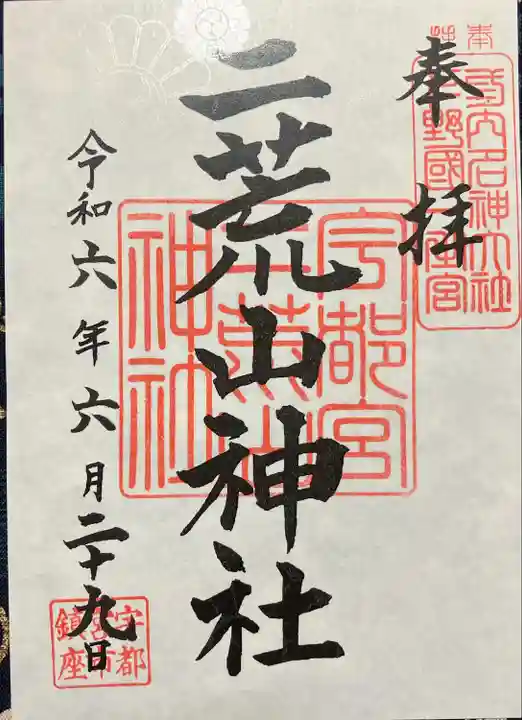 奉拝
二荒山神社
令和六年六月二十九日
宇都宮
二荒山
神社
名神大社
宇都
宮市
鎮座